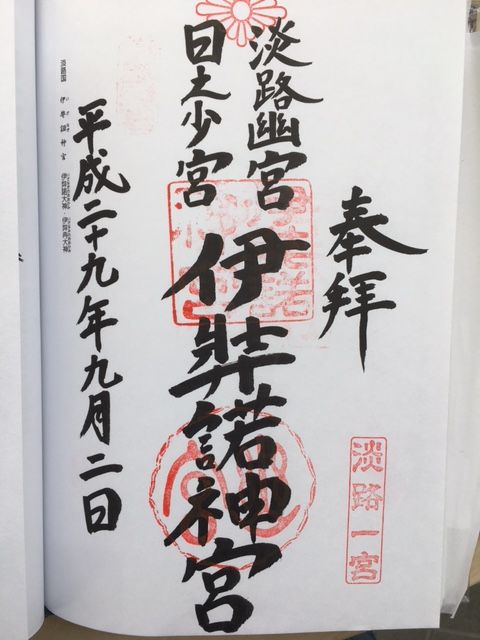 奉拝
淡路一宮
淡路幽宮
日之少宮
伊弉諾神宮
平成二十九年九月二日
淡路国 伊弉諾神宮 伊弉諾大神・伊弉冉大神